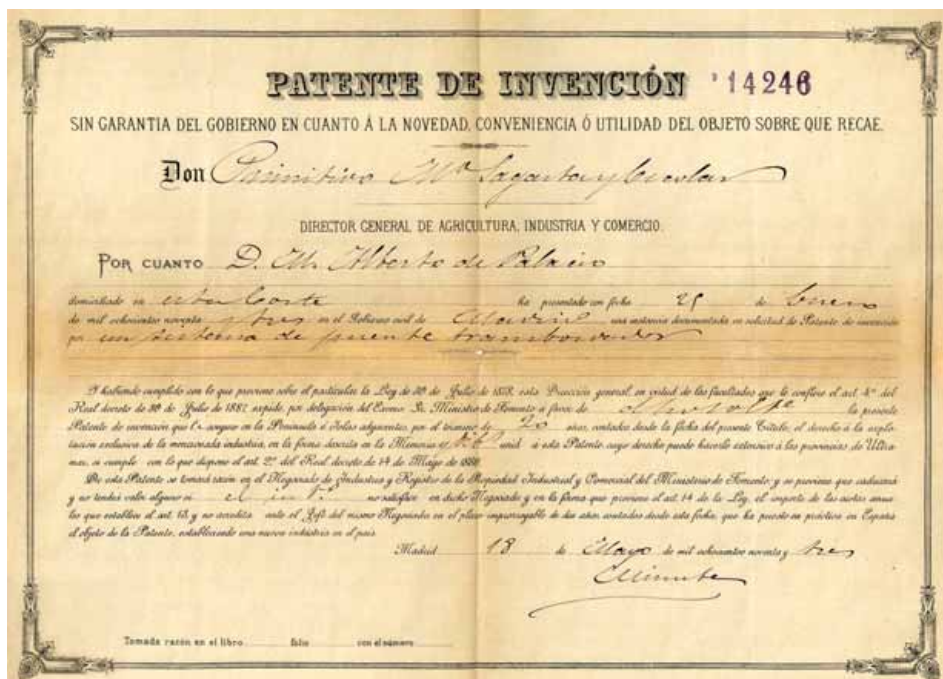 PATENTE DE INVENCIÓN 14246
SIN GARANTIA DEL GOBIERNO EN CUANTO Á LA NOVEDAD, CONVENIENCIA Ó UTILIDAD DEL OBJETO SOBRE QUE RECAE.
Don Primitivo Mª Sagasta y Escolar
DIRECTOR GENERAL DE AGRICULTURA, INDUSTRIA Y COMERCIO.
POR CUANTO D. M. Alberto de Palacio
domiciliado en esta Corte ha presentado con fecha 25 de Enero
de mil ochocientos noventa y tres en el Gobierno civil de Madrid una instancia documentada en solicitud de Patente de invención
por un sistema de puente transbordador
Y habiendo cumplido con lo que previene sobre el particular la Ley de 30 de Julio de 1878, esta Dirección general, en virtud de las facultades que le confiere el art. 4.º del
Real decreto de 30 de Julio de 1887, expide, por delegación del Excmo. Sr. Ministro de Fomento á favor de dicho la presente
Patente de invención que l asegure en la Península é Islas adyacentes, por el término de 20 años, contados desde la fecha del presente Título, el derecho á la explo-
tación exclusiva de la mencionada industria, en la forma descrita en la Memoria unid á esta Patente, cuyo derecho puede hacerle extensivo á las provincias de Ultra-
mar, si cumple con lo que dispone el art. 2.º del Real decreto de 14 de Mayo de 1880.
De esta Patente se tomará razón en el Negociado de Industria y Registro de la Propiedad Industrial y Comercial del Ministerio de Fomento; y se previene que caducará
y no tendrá valor alguno si el no satisface en dicho Negociado y en la forma que previene el art. 14 de la Ley, el importe de las cuotas anua-
les que establece el art. 13, y no acredita ante el Jefe del mismo Negociado en el plazo improrrogable de dos años, contados desde esta fecha, que ha puesto en práctica en España
el objeto de la Patente, estableciendo una nueva industria en el país.
Madrid 18 de Mayo de mil ochocientos noventa y tres
Tomada razón en el libro folio con el número